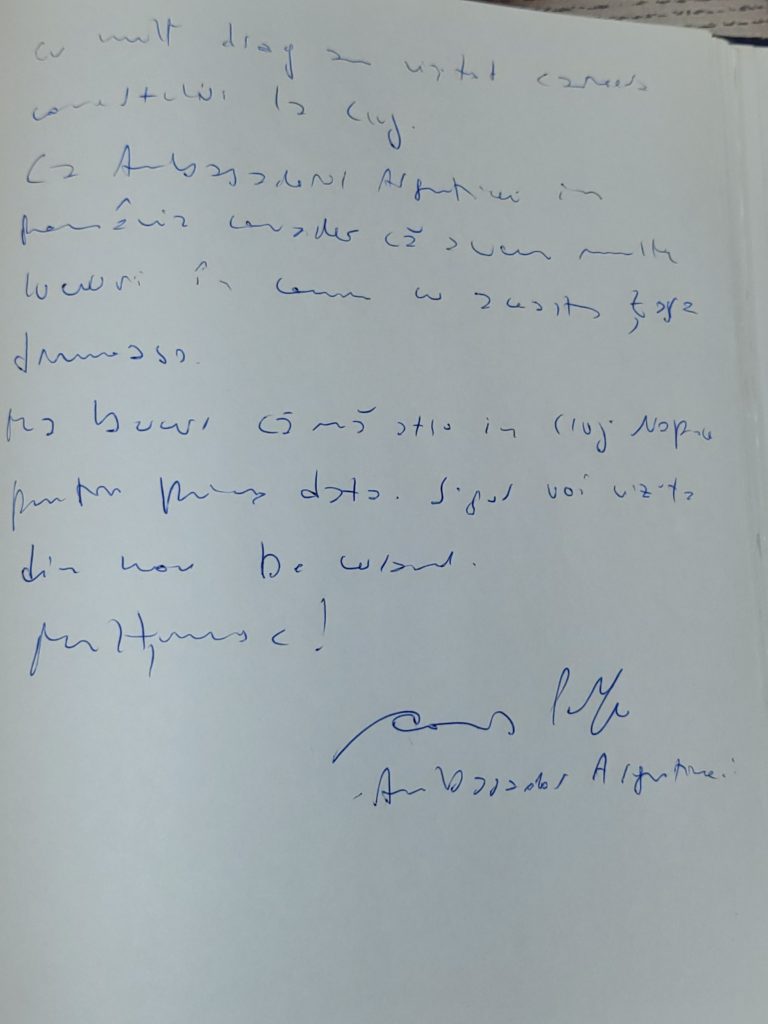 cu mult drag am vizitat camera
comertului la Cluj.
Ca Ambasadorul Argentinei in
România consider că avem multe
lucruri în comun cu aceasta țara
frumoasa.
Ma bucur că mă aflo in Cluj Napoca
pentru prima data. Sigur voi vizita
din nou be curand.
Multumesc!
Ambasador Argentinei